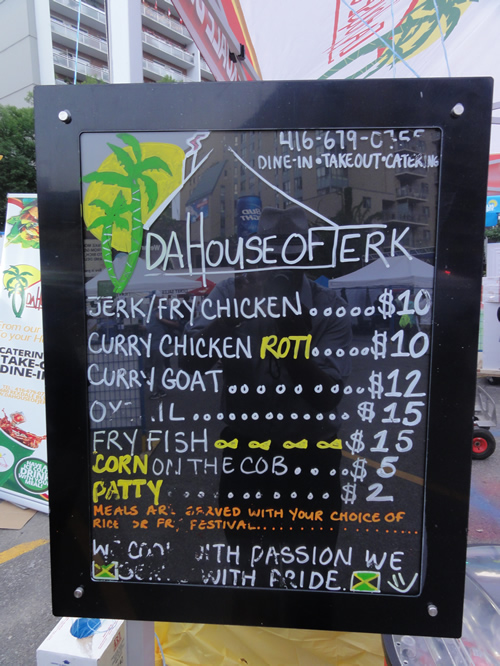 DINE-IN • TAKEOUT • CATERING
DA HOUSE OF JERK
JERK/FRY CHICKEN ..... $10
CURRY CHICKEN ROTI..... $10
CURRY GOAT ........ $12
............. $15
FRY FISH $15
CORN ON THE COB.... $5
PATTY ........ $2
MEALS SERVED WITH YOUR CHOICE OF
RICE FESTIVAL...............
WITH PASSION WE
WITH PRIDE.
CATERIN
TAKE-O
DINE-I